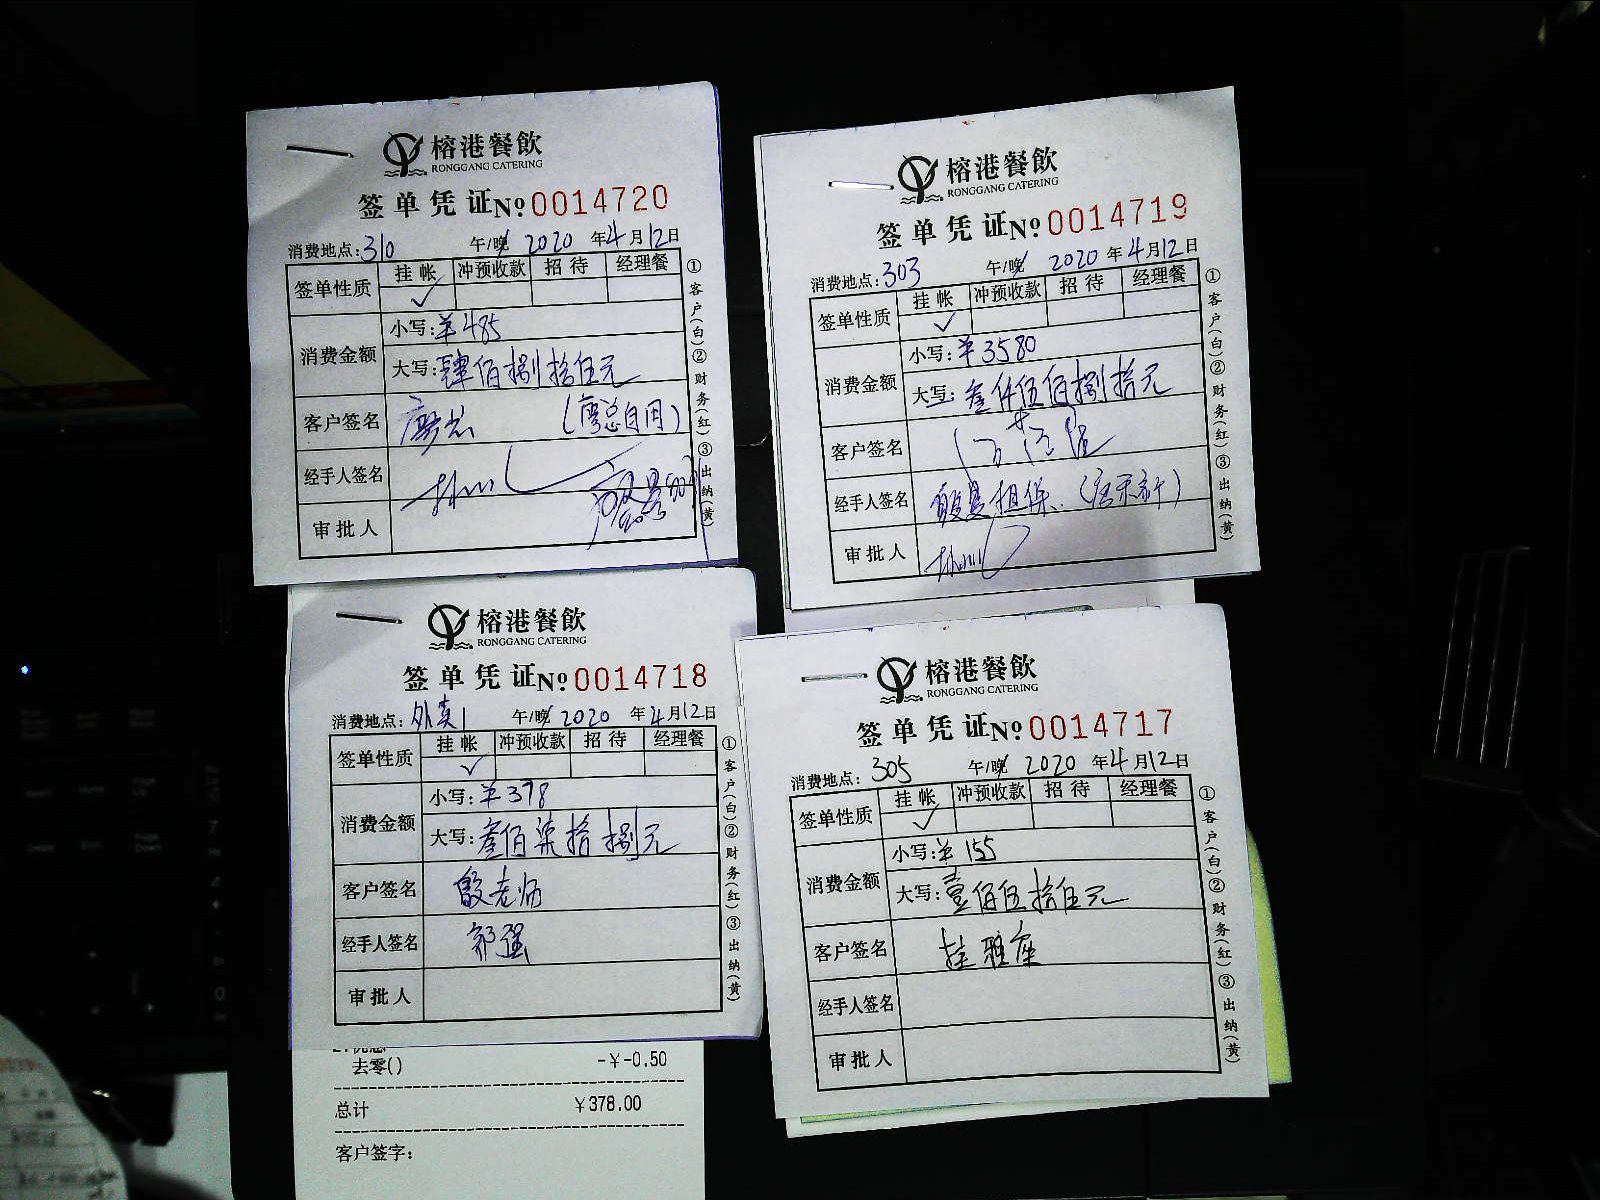 榕港餐飲
RONGGANG CATERING
签单凭证№0014720
消费地点:310 午/晚 2020年4月12日
签单性质 挂帐 冲预收款 招待 经理餐
✓
消费金额 小写:¥485
大写:肆佰捌拾伍元
客户签名 廖总 (廖总自用)
经手人签名
审批人
①客户(白)②财务(红)③出纳(黄)
榕港餐飲
RONGGANG CATERING
签单凭证№0014719
消费地点:303 午/晚 2020年4月12日
签单性质 挂帐 冲预收款 招待 经理餐
✓
消费金额 小写:¥3580
大写:叁仟伍佰捌拾元
客户签名
经手人签名 担保
审批人
①客户(白)②财务(红)③出纳(黄)
榕港餐飲
RONGGANG CATERING
签单凭证№0014718
消费地点:外卖1 午/晚 2020年4月12日
签单性质 挂帐 冲预收款 招待 经理餐
✓
消费金额 小写:¥378
大写:叁佰柒拾捌元
客户签名 殷老师
经手人签名 郭强
审批人
①客户(白)②财务(红)③出纳(黄)
去零() -¥-0.50
总计 ¥378.00
客户签字:
榕港餐飲
RONGGANG CATERING
签单凭证№0014717
消费地点:305 午/晚 2020年4月12日
签单性质 挂帐 冲预收款 招待 经理餐
✓
消费金额 小写:¥155
大写:壹佰伍拾伍元
客户签名 挂雅座
经手人签名
审批人
①客户(白)②财务(红)③出纳(黄)